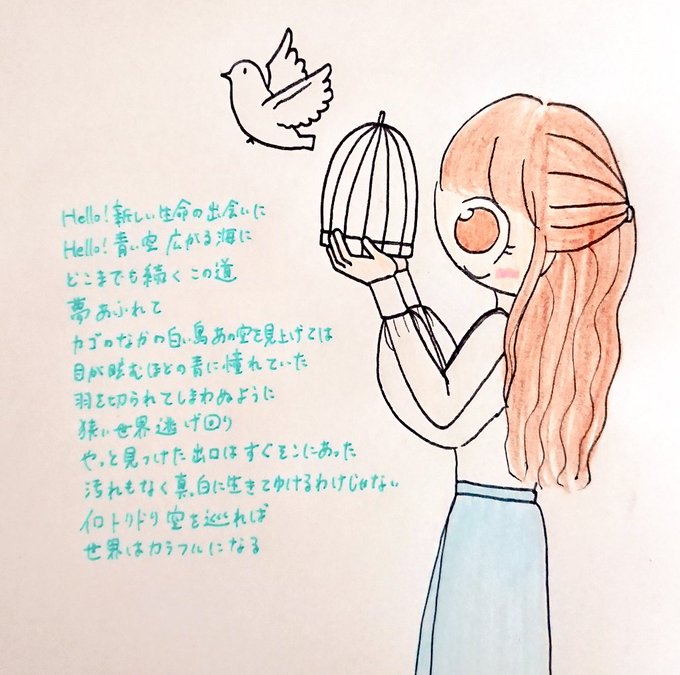 Hello!新しい生命の出会いに
Hello!青い空 広がる海に
どこまでも続く この道
夢あふれて
カゴのなかの白い鳥あの空を見上げては
目が眩むほどの青に憧れていた
羽を切られてしまわぬように
狭い世界逃げ回り
やっと見つけた出口はすぐそこにあった
汚れもなく真っ白に生きてゆけるわけじゃない
イロトリドリ空を巡れば
世界はカラフルになる